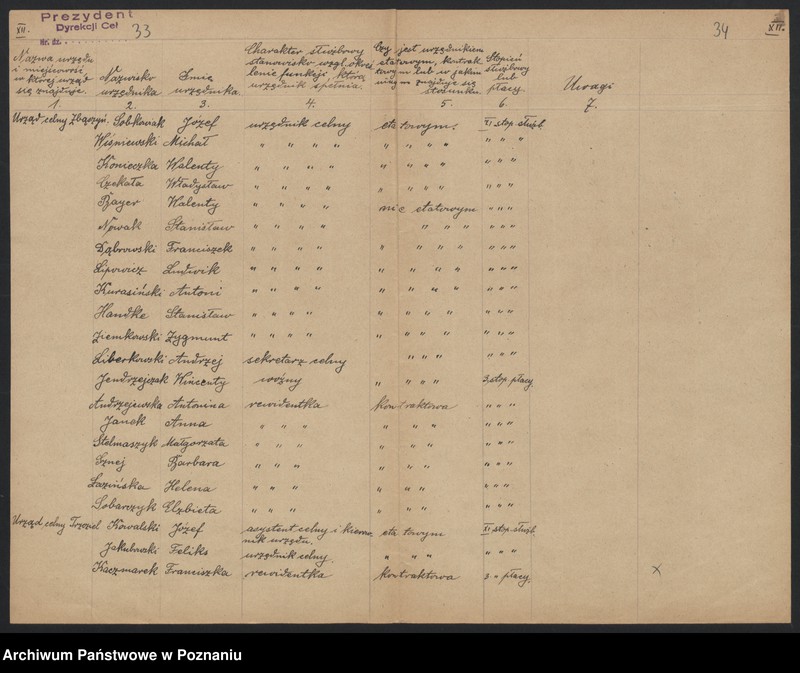 XII.
Prezydent
Dyrekcji Ceł
Nr. dz.
33
34
XII.
Nazwa urzędu i miejscowość w której urząd się znajduje.
Nazwisko urzędnika
Imię urzędnika
Charakter służbowy stanowisko wzgl. określenie funkcji, którą urzędnik spełnia.
Czy jest urzędnikiem etatowym, kontraktowym lub w jakim innym znajduje się stosunku
Stopień służbowy lub płacy.
Uwagi
1. 2. 3. 4. 5. 6. 7.
Urząd celny Zbąszyń. Sobkowiak Józef urzędnik celny etatowym. XI stop. służb.
Wiśniewski Michał " " " " " " " " " " "
Konieczka Walenty " " " " " " " " " " "
Czekała Władysław " " " " " " " " " " "
Bayer Walenty " " " " nie etatowym " " "
Nowak Stanisław " " " " " " " " " "
Dąbrowski Franciszek " " " " " " " " " " "
Lipowicz Ludwik " " " " " " " " " " "
Kurasiński Antoni " " " " " " " " " " "
Handke Stanisław " " " " " " " " " " "
Ziemkowski Zygmunt " " " " " " " " " " "
Liberkowski Andrzej sekretarz celny " " " " " "
Jendrzejczak Wincenty woźny " " " " 3. stop. płacy
Andrzejewska Antonina rewidentka kontraktowa " " "
Janek Anna " " " " " " " " "
Stelmaszyk Małgorzata " " " " " " " " "
Sznej Barbara " " " " " " " " "
Łazińska Helena " " " " " " " " "
Sobarczyk Elżbieta " " " " " " " " "
Urząd celny Trzciel Kowalski Józef asystent celny i kierownik urzędu. etatowym XI stop. służb.
Jakubowski Feliks urzędnik celny. " " " " " "
Kaczmarek Franciszka rewidentka kontraktowa 3. " płacy.
x
Archiwum Państwowe w Poznaniu